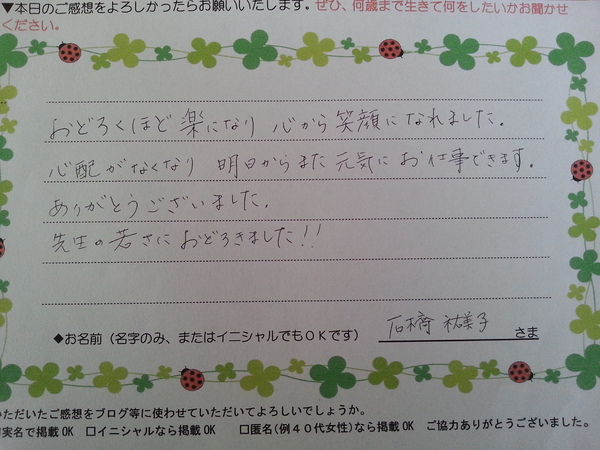 ▼本日のご感想をよろしかったらお願いいたします。ぜひ、何歳まで生きて何をしたいかお聞かせ
ください。
おどろくほど楽になり 心から笑顔になれました。
心配がなくなり 明日からまた元気にお仕事できます。
ありがとうございました。
先生の若さにおどろきました!!
◆お名前（名字のみ、またはイニシャルでもOKです）
さま
いただいたご感想をブログ等に使わせていただいてよろしいでしょうか。
実名で掲載OK □イニシャルなら掲載OK □匿名（例40代女性）なら掲載OK ご協力ありがとうございました。